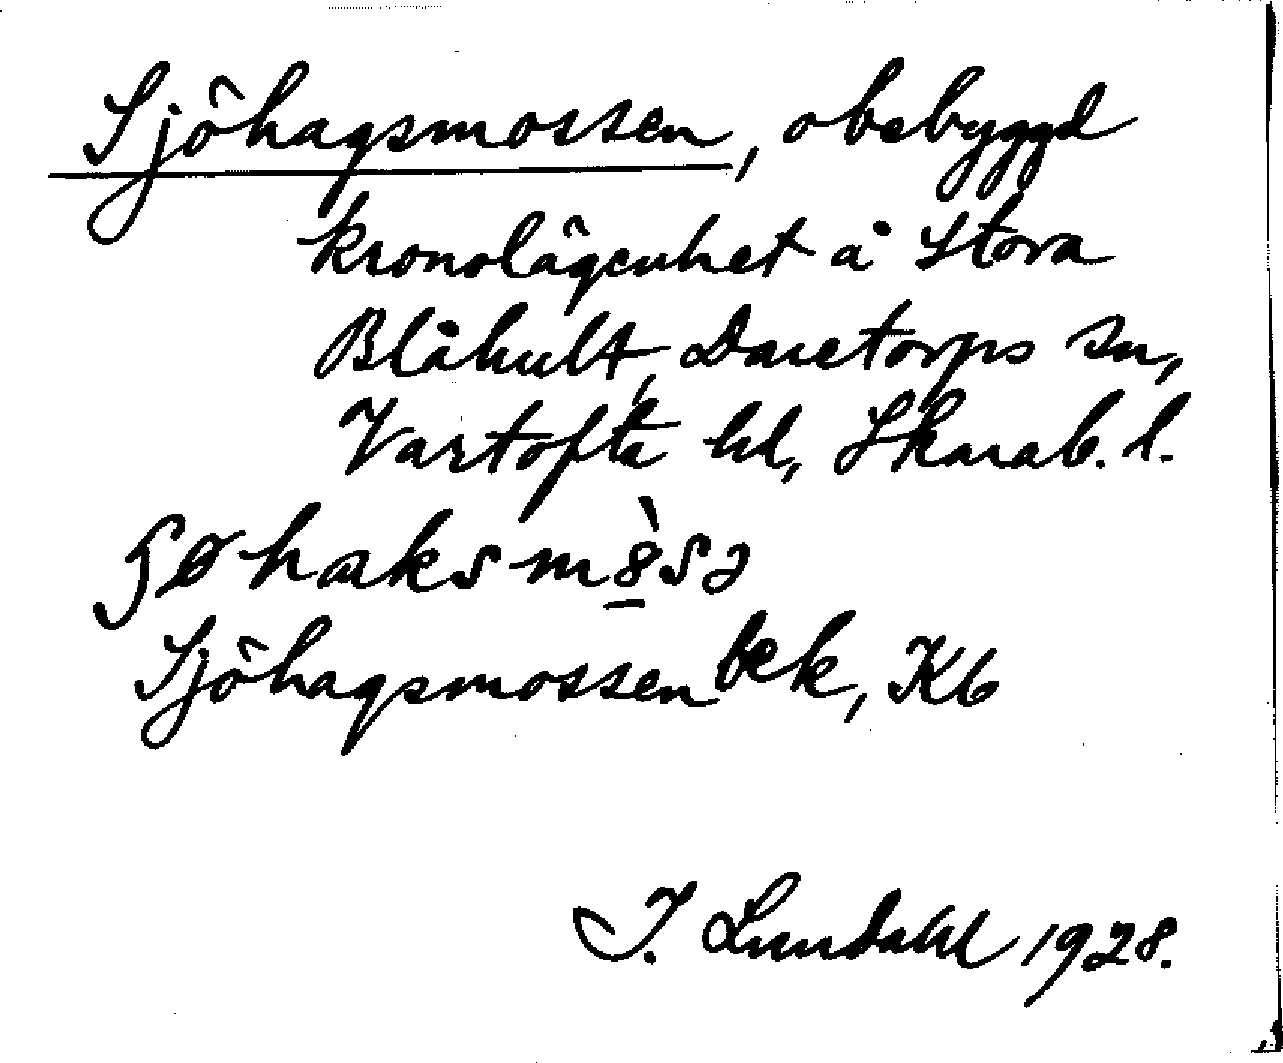 Sjöhagsmossen, obebyggd
kronolägenhet å Stora
Blåhult, Daretorps sn,
Vartofta hd, Skarab. l.
ʂøhaksm8̠̀sə
Sjöhagsmossen bek, Kb
I. Lundahl 1928.